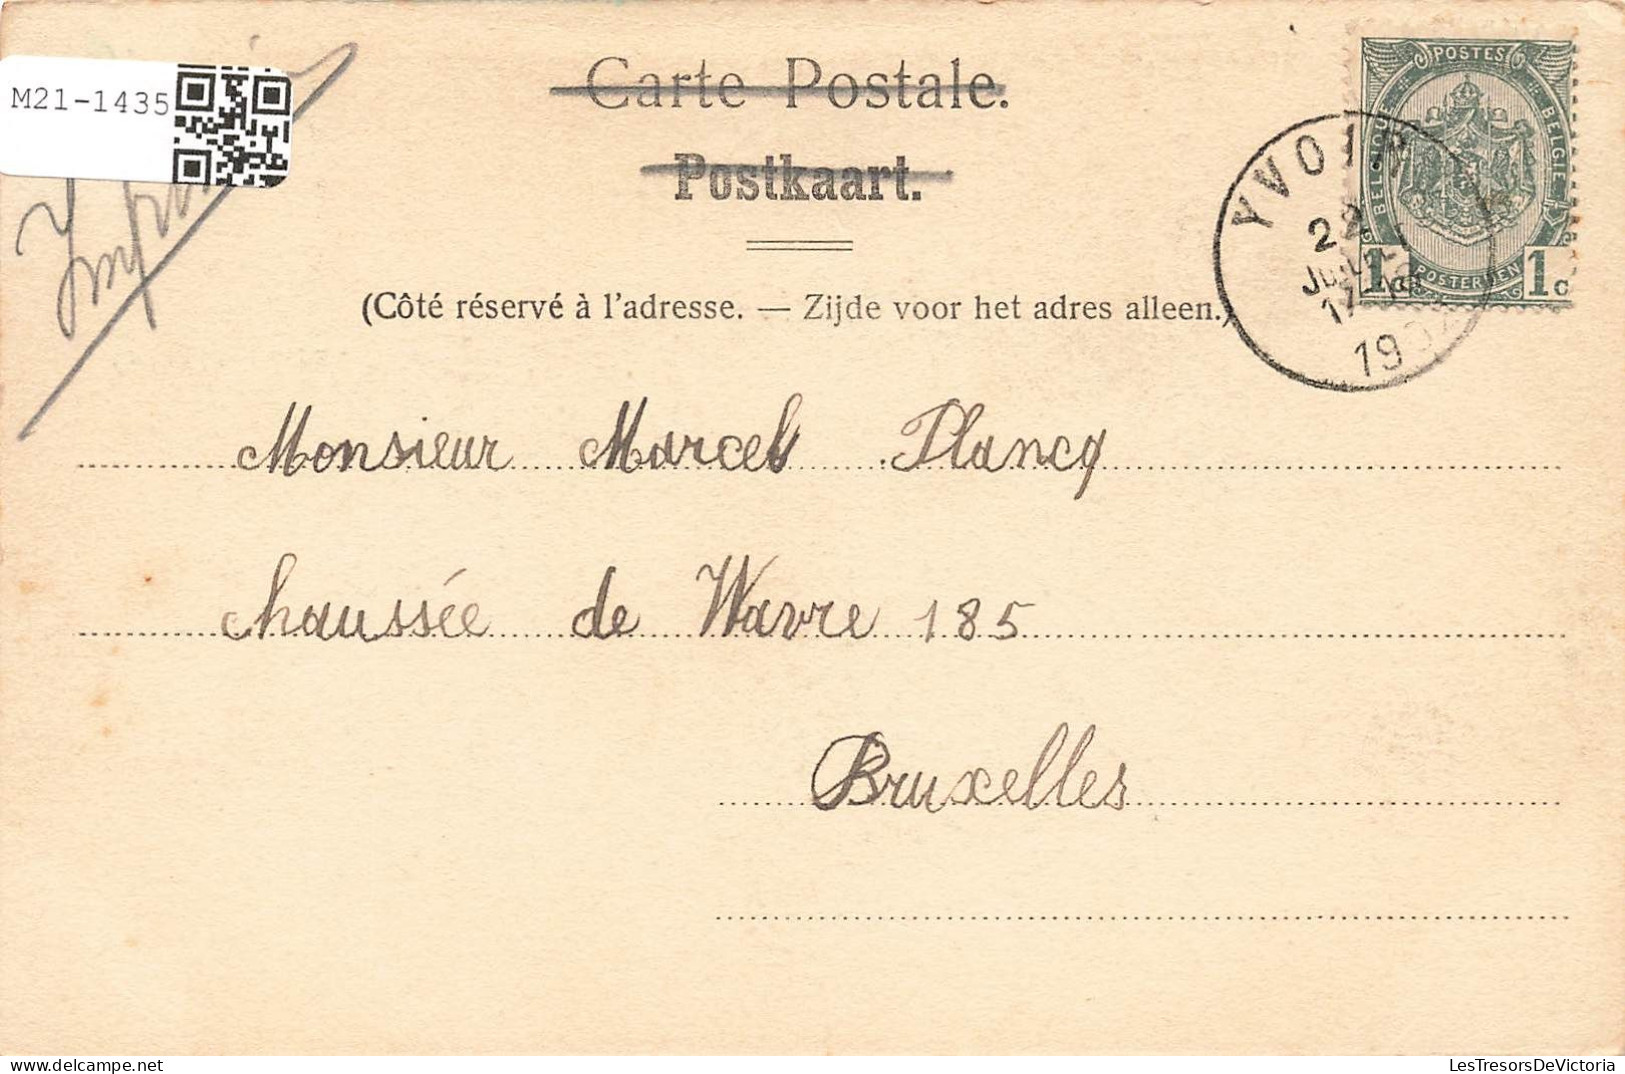 M21-1435
Carte Postale.
Postkaart.
(Côté réservé à l'adresse. — Zijde voor het adres alleen.)
POSTES
BELGIQUE BELGIE
POSTERIJEN
1 1c
YVOIR
JUIL
Monsieur Marcel Plancq
chaussée de Wavre 185
Bruxelles
LesTresorsDeVictoria